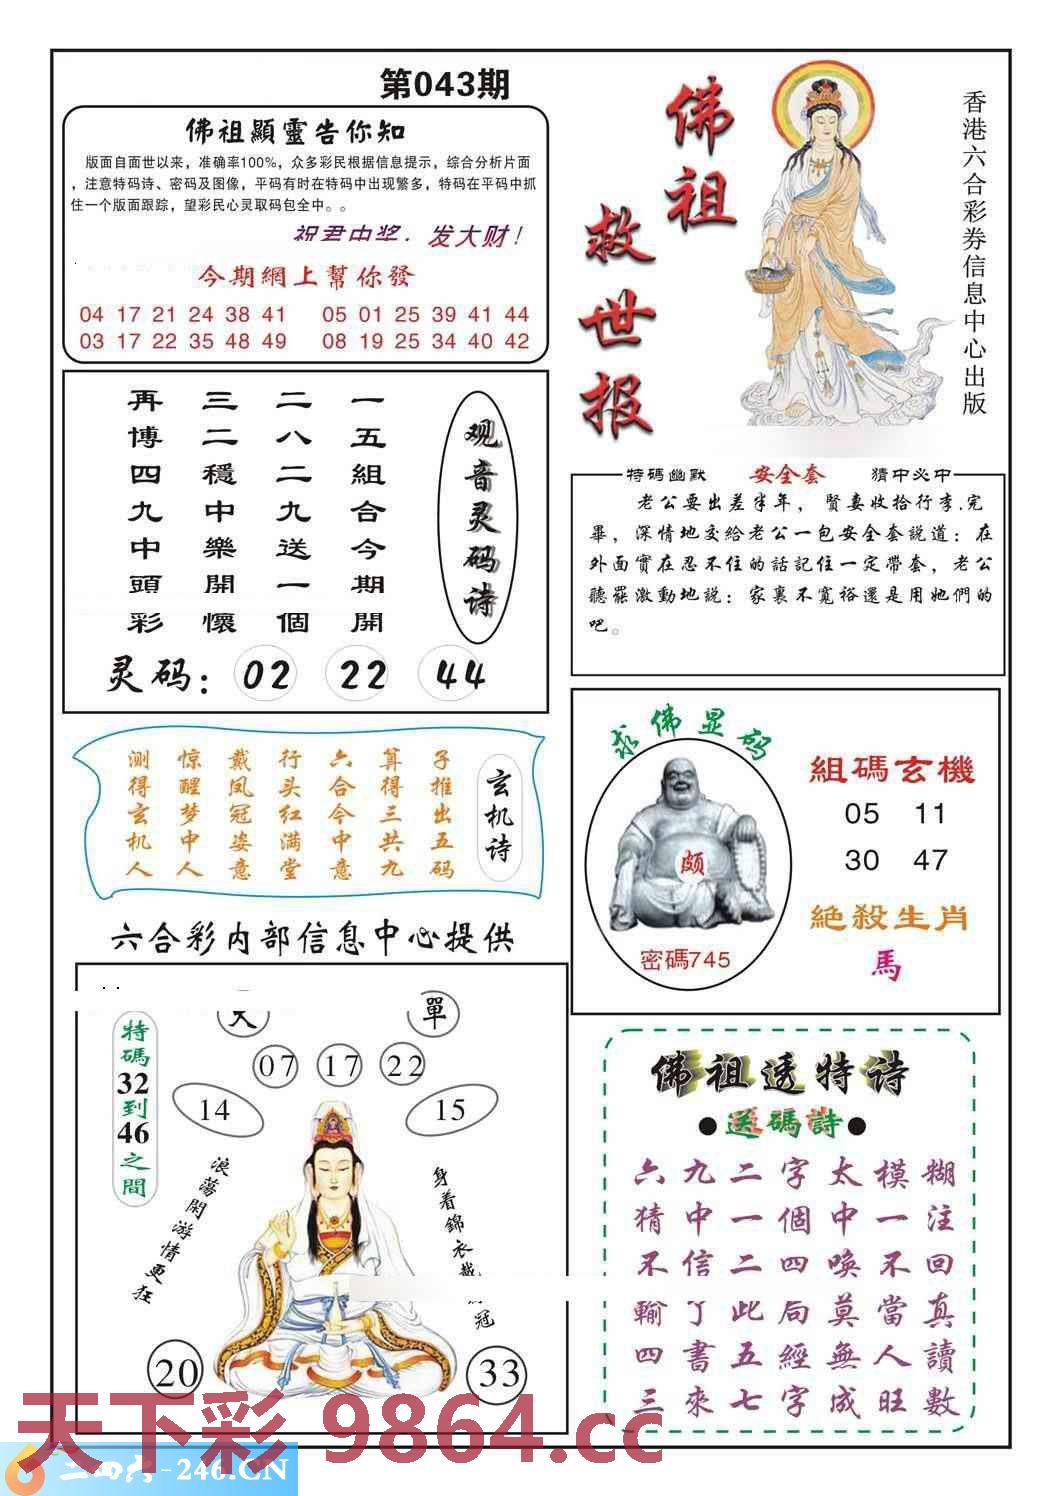 第043期
佛祖顯靈告你知
版面自面世以来，准确率100%，众多彩民根据信息提示，综合分析片面
，注意特码诗、密码及图像，平码有时在特码中出现繁多，特码在平码中抓
住一个版面跟踪，望彩民心灵取码包全中。。
祝君中奖，发大财！
今期網上幫你發
04 17 21 24 38 41 05 01 25 39 41 44
03 17 22 35 48 49 08 19 25 34 40 42
佛祖
救世报
香港六合彩券信息中心出版
观音灵码诗
一五組合今期開
二八二九送一個
三二穩中樂開懷
再博四九中頭彩
灵码：02 22 44
特碼幽默 安全套 猜中必中
老公要出差半年，賢妻收拾行李.完
畢，深情地交給老公一包安全套説道：在
外面實在忍不住的話記住一定帶套，老公
聽罷激動地説：家裏不寬裕還是用她們的
吧。
玄机诗
子推出五码
算得三共九
六合今中意
行头红满堂
戴凤冠姿意
惊醒梦中人
测得玄机人
求佛显码
颇
密碼745
組碼玄機
05 11
30 47
絕殺生肖
馬
六合彩内部信息中心提供
單
07 17 22
14 15
特碼32到46之間
浪蕩閑游情更狂
身着錦衣戴
冠
20 33
佛祖透特诗
●送碼詩●
六九二字太模糊
猜中一個中一注
不信二四喚不回
輸了此局莫當真
四書五經無人讀
三來七字成旺數
天下彩 9864.cc
二四六-246.CN